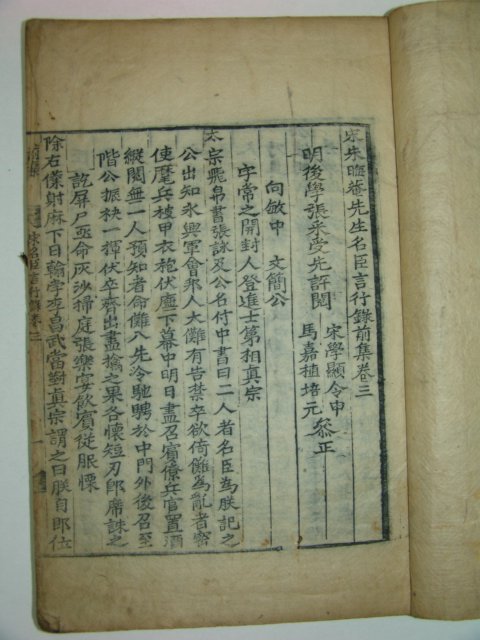 宋朱晦菴先生名臣言行錄前集卷三
明後學張采受先評閱
宋學顯令申
馬嘉植培元 叅正
向敏中 文簡公
字常之開封人登進士第相眞宗
太宗飛帛書張詠及公名付中書曰二人者名臣爲朕記之
公出知永興軍會邦人大儺有告禁卒欲倚儺爲亂者密
使麾兵被甲衣袍伏廡下幕中明日盡召賓僚兵官置酒
縱閱無一人預知者命儺入先令馳騁於中門外後召至
階公振袂一揮伏卒齊出盡擒之果各懷短刃卽席誅之
訖屛尸亟命灰沙掃庭張樂宴飮賓從股慄
除右僕射麻下日翰學李昌武當對眞宗謂之曰朕自卽位
宋名臣言行錄卷三